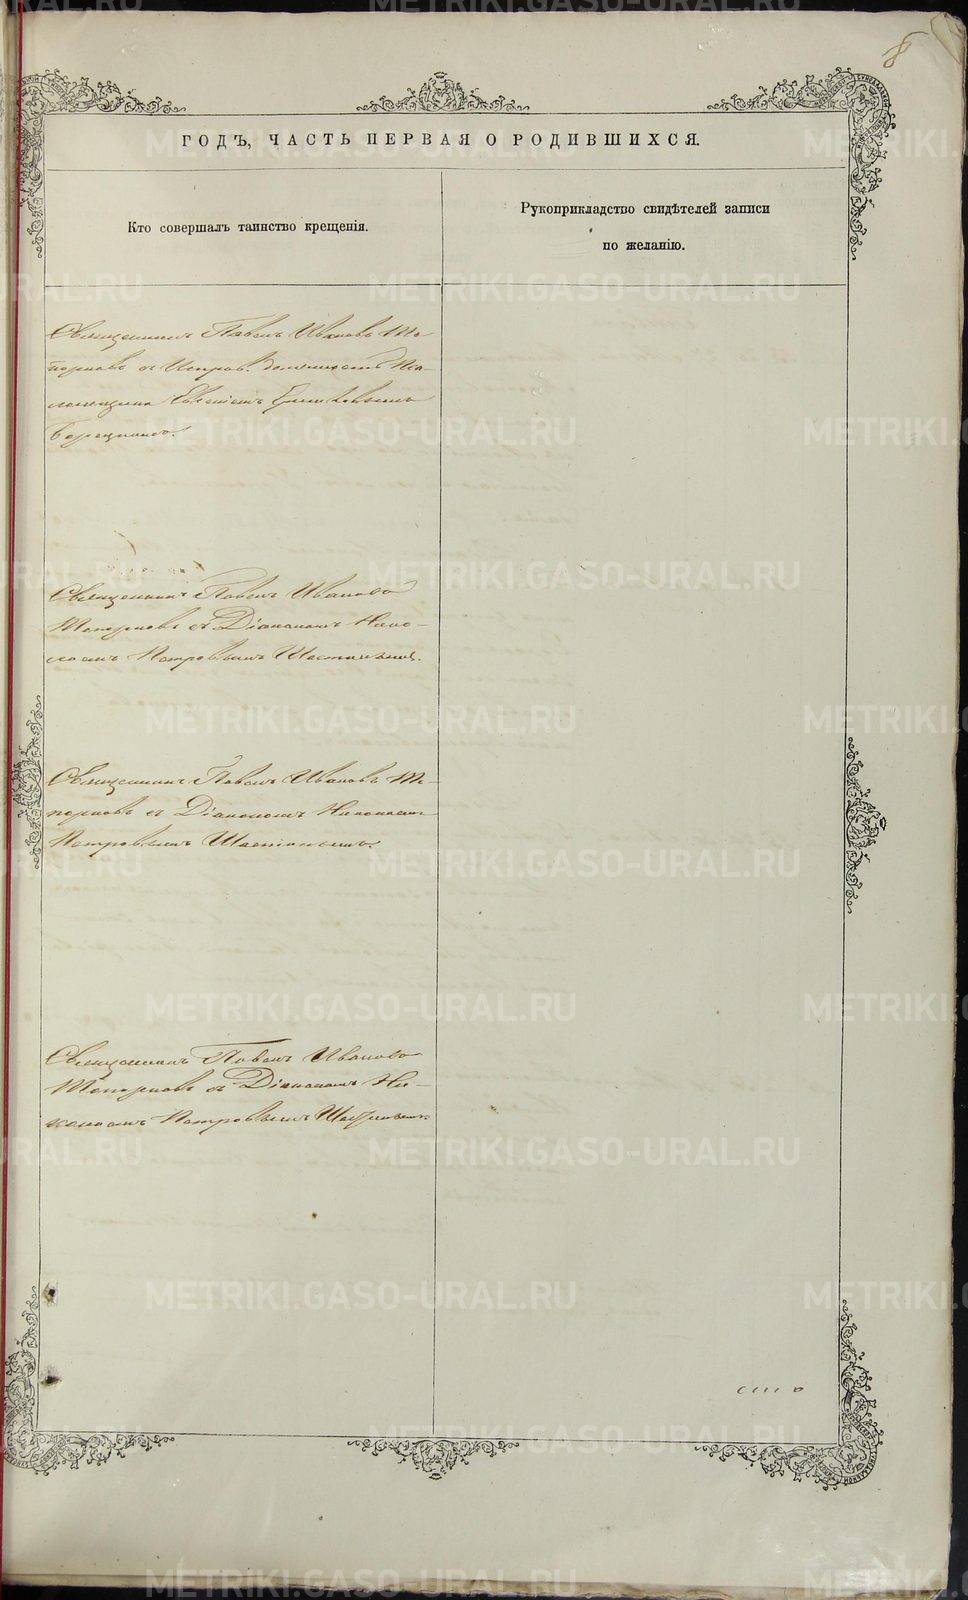 8
ГОДЪ, ЧАСТЬ ПЕРВАЯ О РОДИВШИХСЯ.
Кто совершалъ таинство крещенія.
Рукоприкладство свидѣтелей записи
по желанію.
Священникъ Павелъ Ивановъ То-
порковъ съ Исправ. должность Пса-
ломщика
Священникъ Павелъ Ивановъ
Топорковъ съ Діакономъ Нико-
лаемъ Петровымъ
Священникъ Павелъ Ивановъ То-
порковъ съ Діакономъ Николаемъ
Петровымъ
Священникъ Павелъ Ивановъ
Топорковъ съ Діакономъ Ни-
колаемъ Петровымъ
METRIKI.GASO-URAL.RU